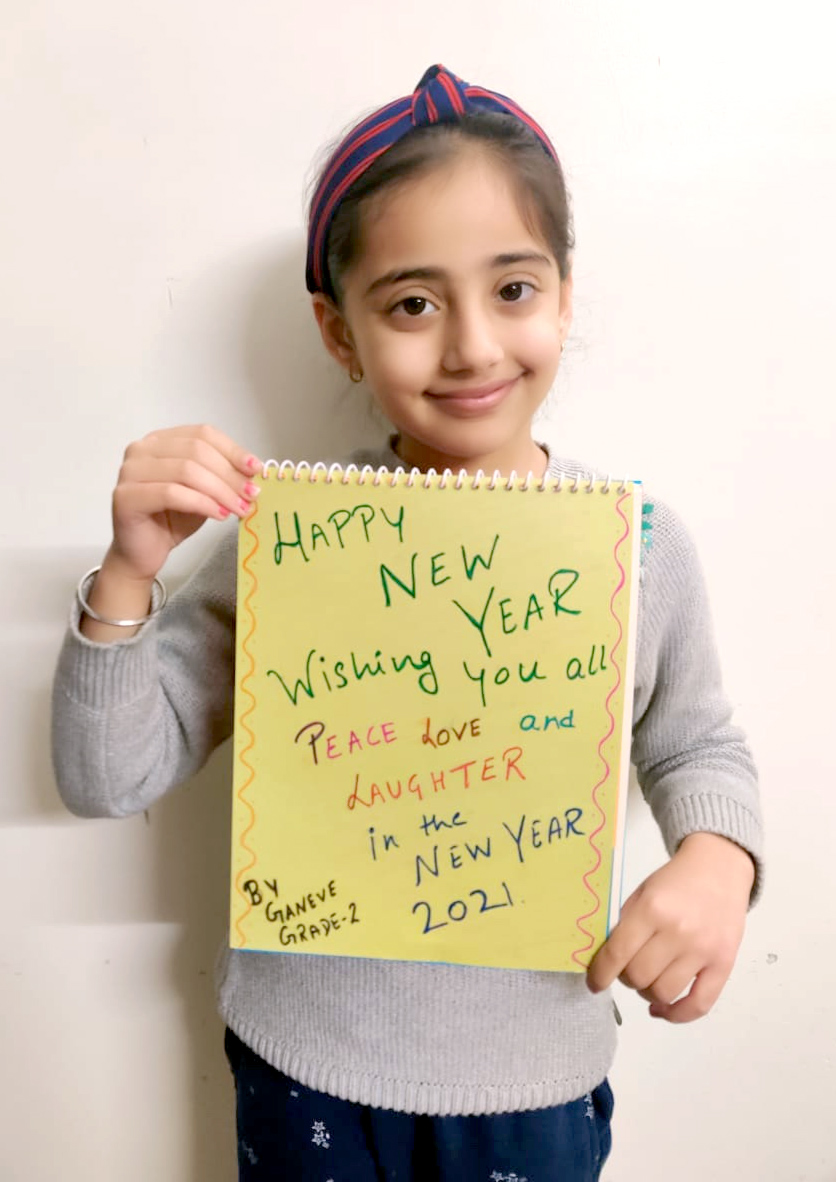 HAPPY
NEW
YEAR
Wishing you all
PEACE LOVE and
LAUGHTER
in the
NEW YEAR
2021.
BY
GANEVE
GRADE-2